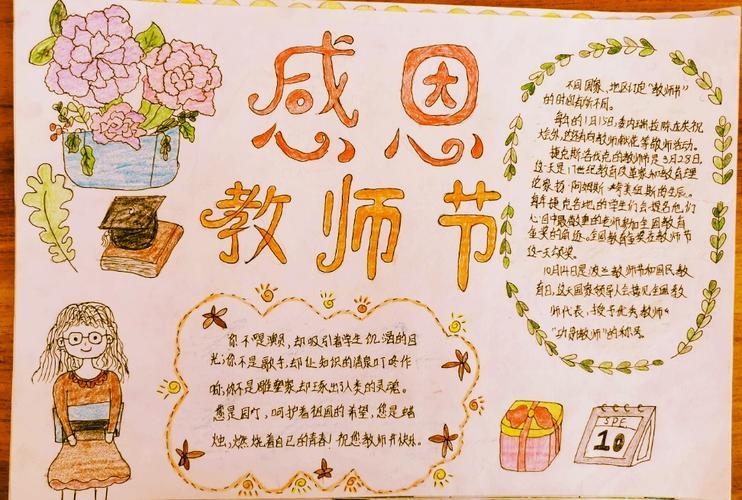 感恩
教师节
不同国家、地区订定“教师节”
的时间有所不同。
每年的1月15日,委内瑞拉除在庆祝
会外,还有向教师献花等教师活动。
捷克斯洛伐克的教师是3月28日,
这天是17世纪教育改革家和教育理
论家扬·阿姆斯·夸美纽斯的生辰。
每年捷克各地的学生们会提名他们
心目中最敬重的老师参加全国教育
金奖的角逐,全国教育金奖在教师节
这一天颁奖。
10月14日是波兰教师节和国民教
育日,这天国家领导人会接见全国教
师代表,授予优秀教师
“功勋教师”的称号。
你不是演员,却吸引着学生饥渴的目
光;你不是歌手,却让知识的清泉叮咚作
响,你不是雕塑家,却琢出人类的灵魂。
您是园丁,呵护着祖国的希望,您是蜡
烛,燃烧着自己的青春!祝您教师节快乐。
SPE
10